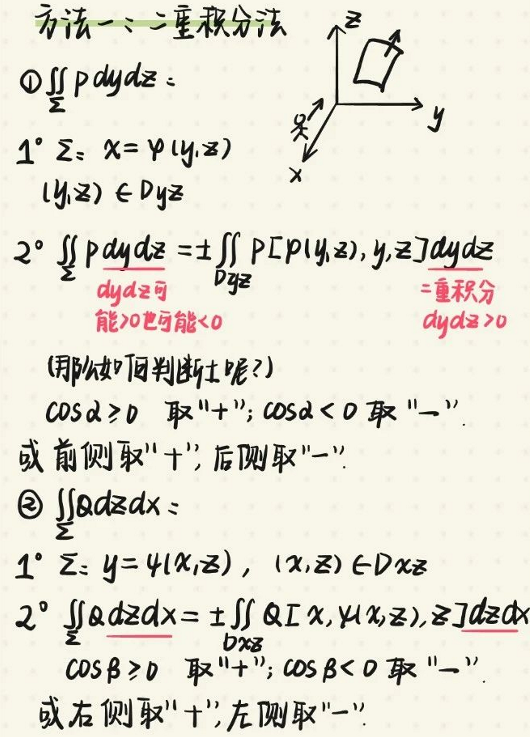 方法一：二重积分法
z
y
x
① ∬Σ Pdydz：
1° Σ: x=φ(y,z)
(y,z)∈Dyz
2° ∬Σ Pdydz=±∬Dyz P[φ(y,z),y,z]dydz
dydz可 二重积分
能>0也可能<0 dydz>0
(那么如何判断±呢?)
cosα≥0 取"+"; cosα<0 取"—".
或前侧取"+", 后侧取"—".
② ∬Σ Qdzdx：
1° Σ: y=ψ(x,z), (x,z)∈Dxz
2° ∬Σ Qdzdx=±∬Dxz Q[x,ψ(x,z),z]dzdx
cosβ≥0 取"+"; cosβ<0 取"—".
或右侧取"+", 左侧取"—".